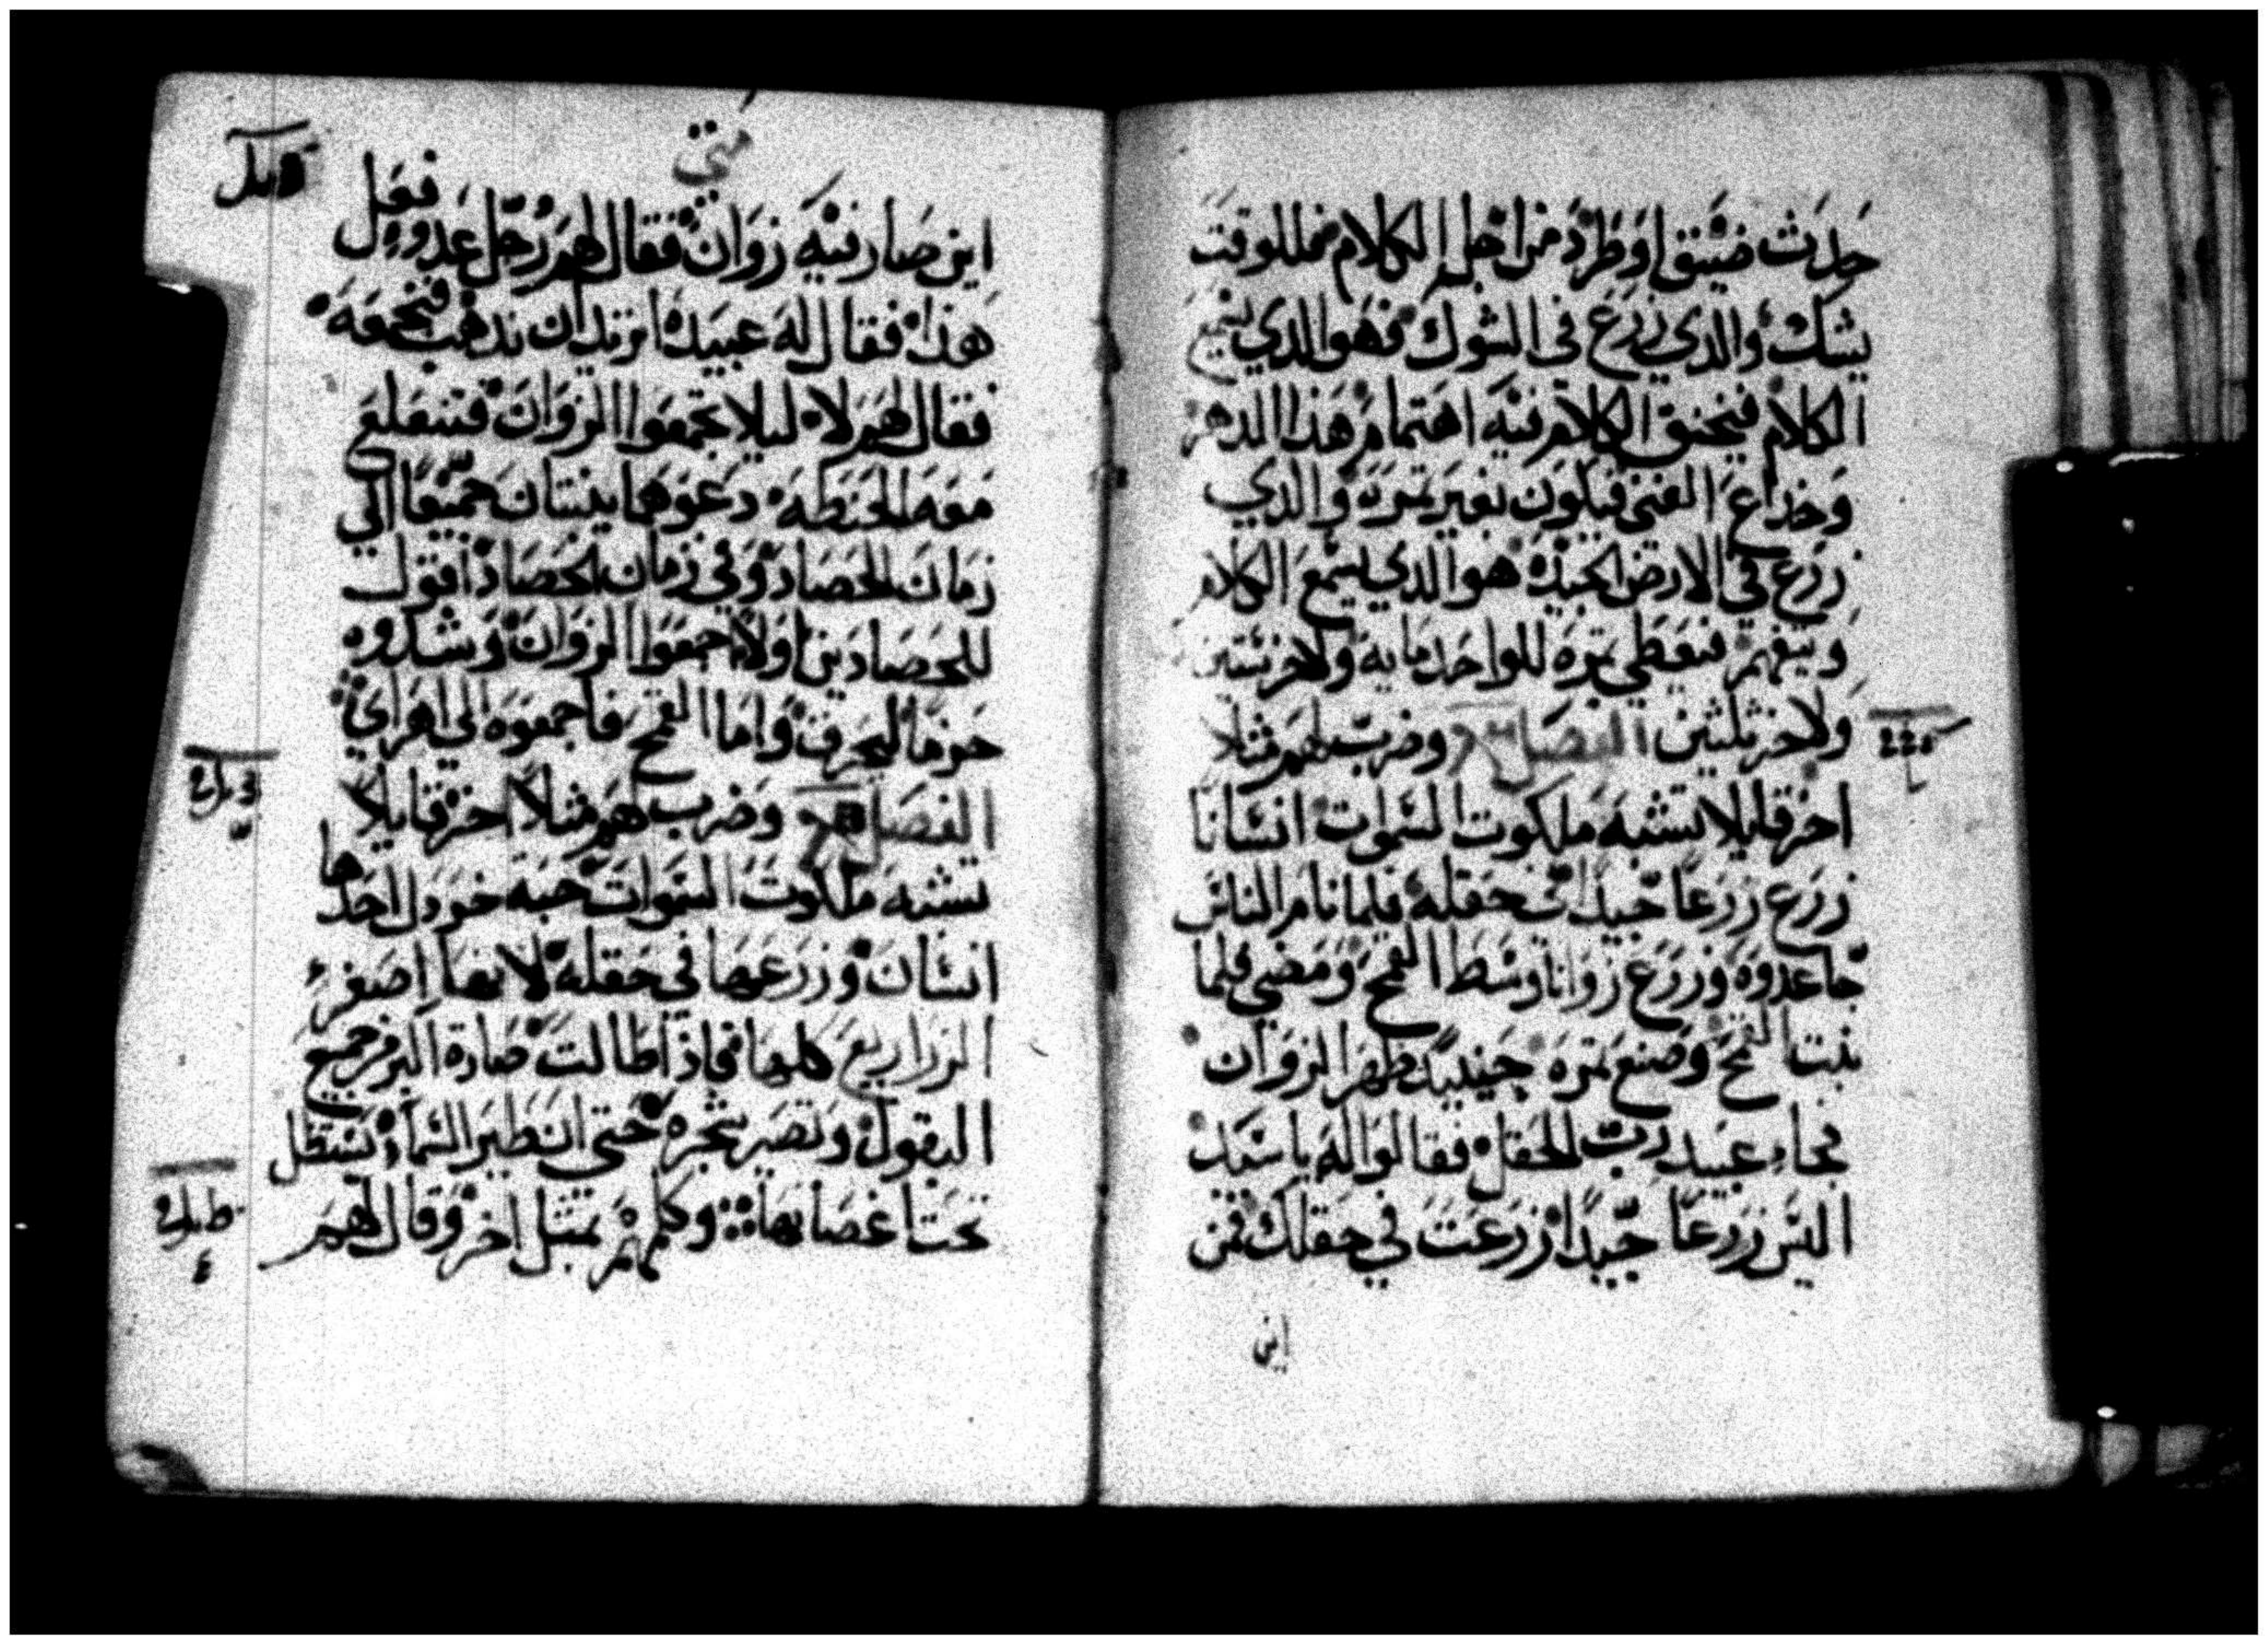 حدث ضيق او طرد من اجل الكلام فللوقت
يشك والدي زرع في الشوك فهو الدي يسمع
الكلام فيخنق الكلام فيه اهتمام هذا الدهر
وخداع الغني فيكون بغير تمره والدي
زرع في الارض الجيده هو الدي يسمع الكلام
ويتفهم فيعطي تمره للواحد مايه ولاخر ستين
ولاخر ثلثين الفصل وضرب لهم مثلا
اخر قايلا تشبه ملكوت السموات انسانا
زرع زرعا جيدا في حقله فلما نام الناس
جا عدوه وزرع زوانا وسط القمح ومضي فلما
نبت القمح وصنع تمره حينيد ظهر الزوان
فجاء عبيد رب الحقل فقالوا له ياسيد
اليس زرعا جيدا زرعت في حقلك فمن
اين
متي
اين صار فيه زوان فقال لهم رجل عدو فعل
هذا فقال له عبيده اتريد ان ندهب فنجمعه
فقال لهم لا ليلا تجمعوا الزوان فتنقلع
معه الحنطه دعوهما ينبتان جميعا الي
زمان الحصاد وفي زمان الحصاد اقول
للحصادين اولا اجمعوا الزوان وشدوه
حزما ليحرق واما القمح فاجمعوه الي اهراي
الفصل وضرب لهم مثلا اخر قايلا
تشبه ملكوت السموات حبه خردل اخدها
انسان وزرعها في حقله لانها اصغر
الزراريع كلها فاذا طالت صارة اكبر من جميع
البقول وتصير شجره حتي ان طير السماء تستظل
تحت اغصانها وكلمهم بمثل اخر وقال لهم